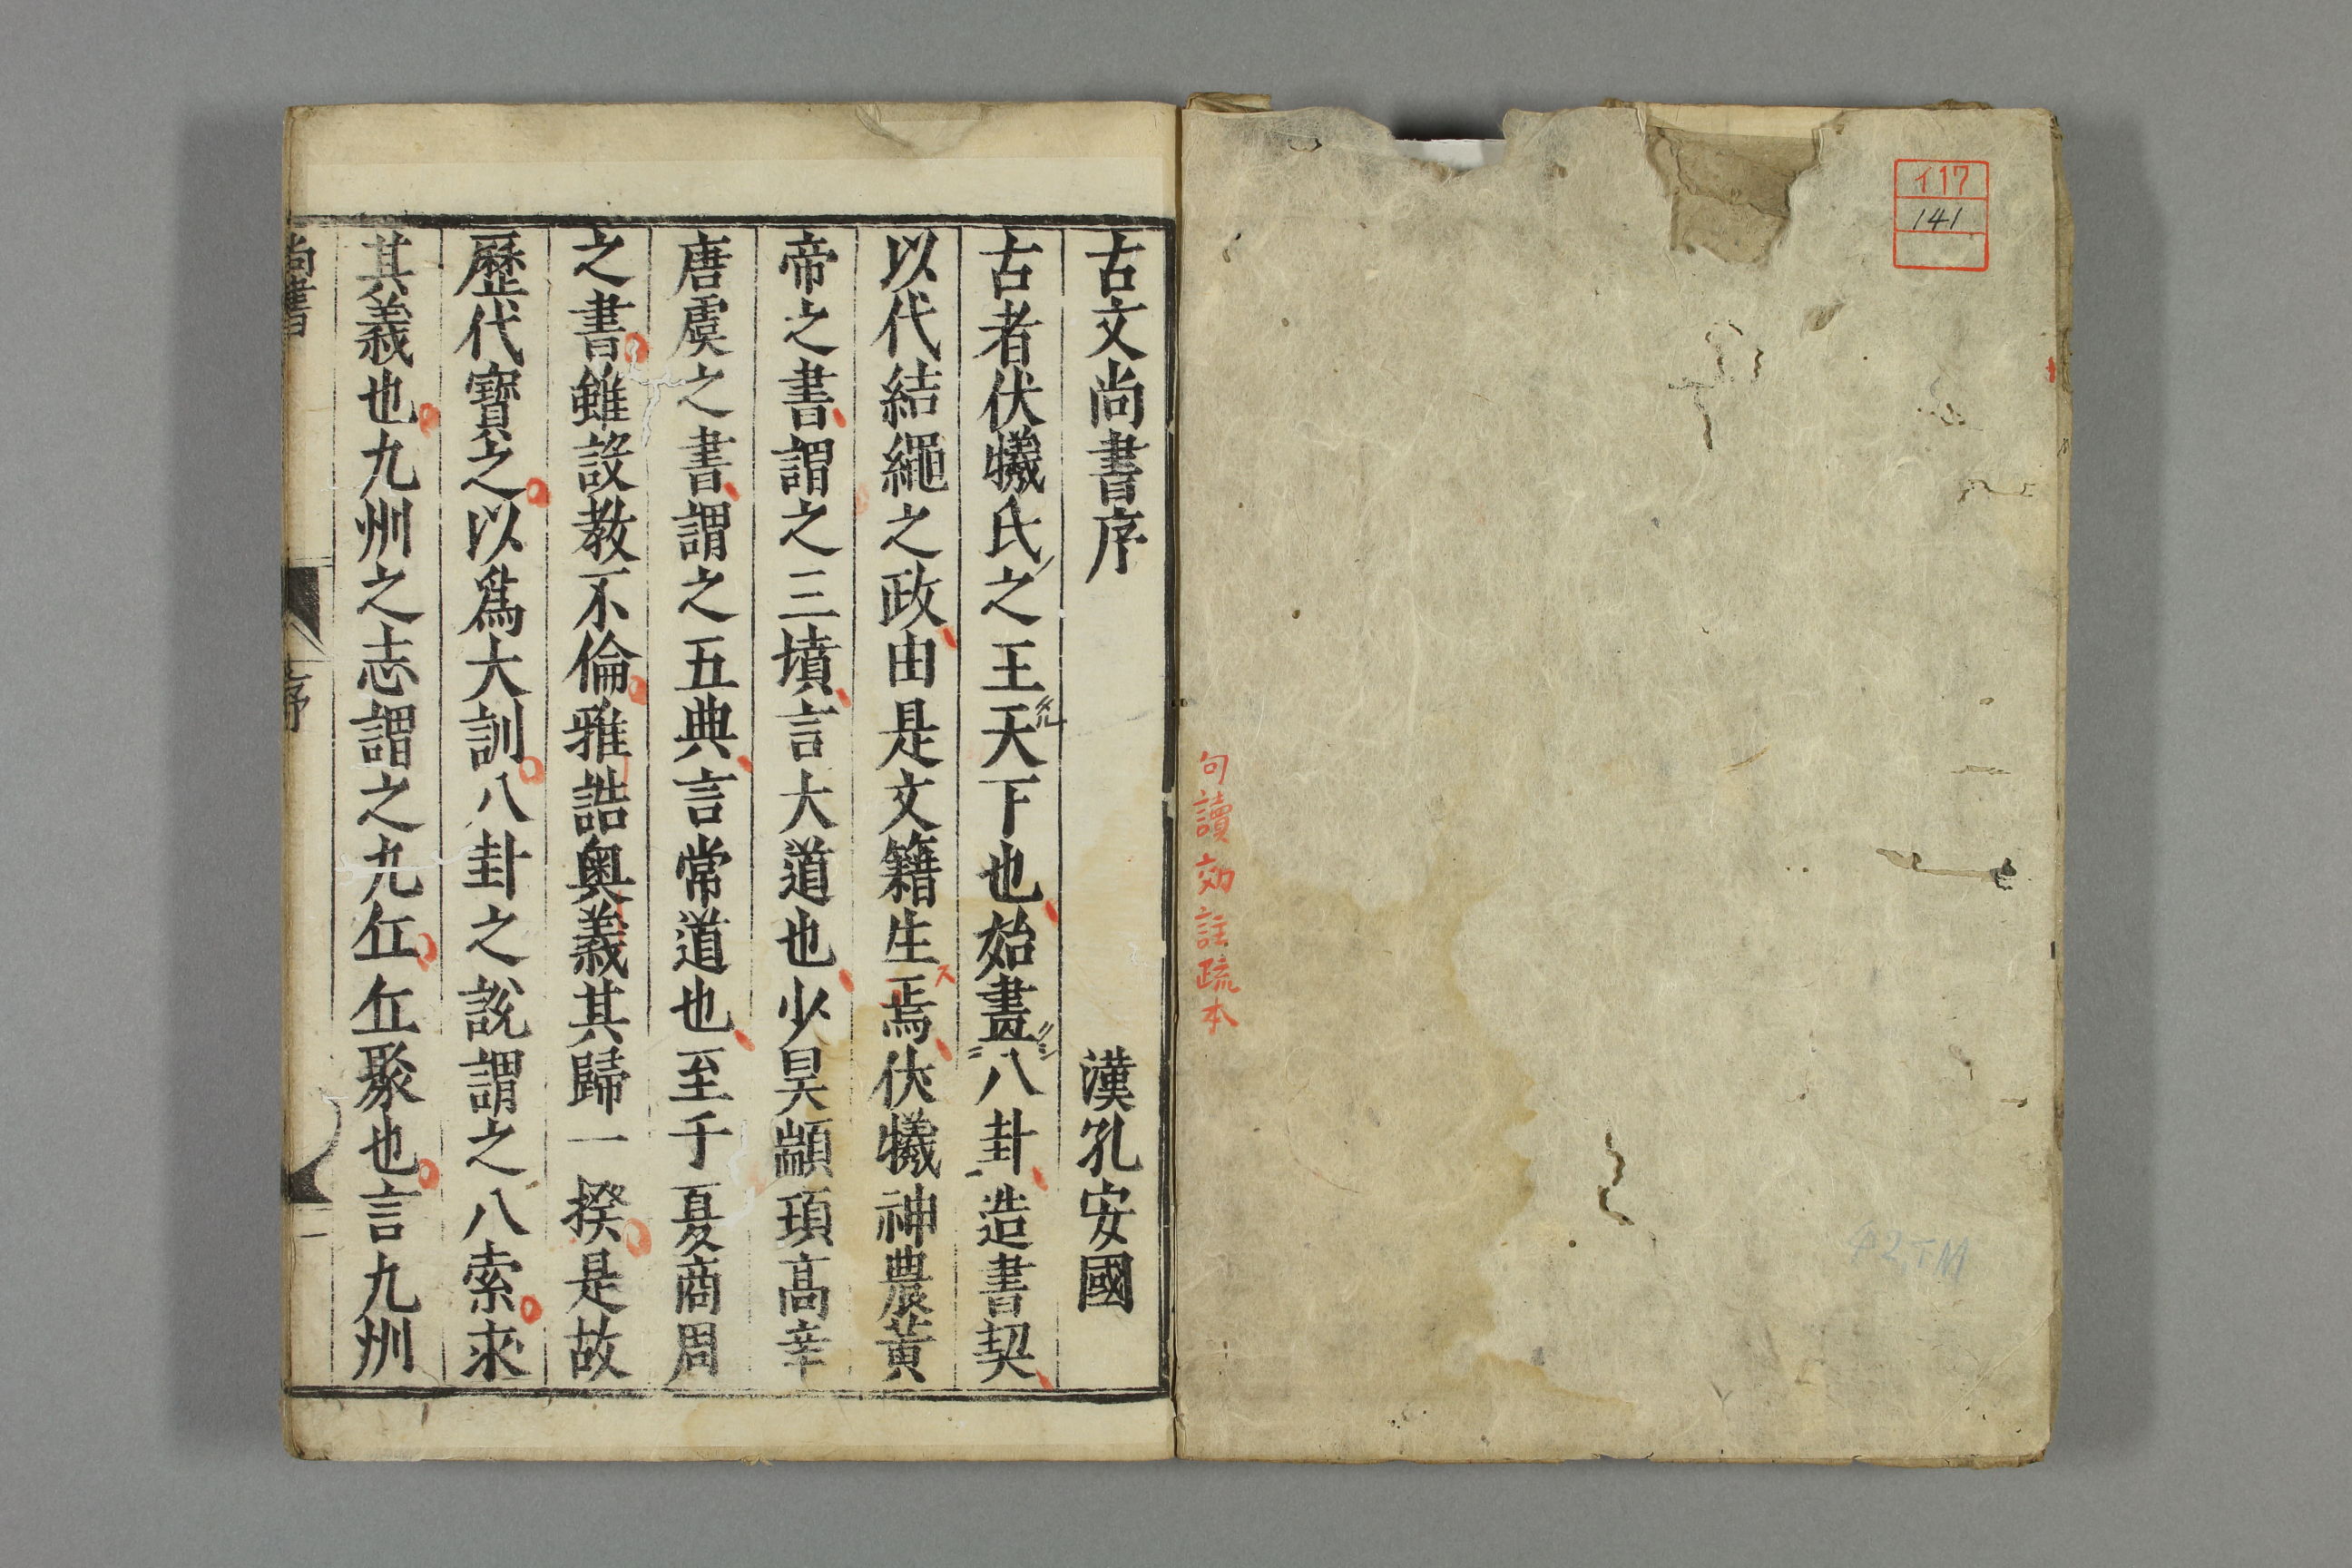 イ17
141
句讀効註疏本
古文尚書序 漢孔安國
古者伏犧氏之王天下也始畫八卦造書契
以代結繩之政由是文籍生焉伏犧神農黄
帝之書謂之三墳言大道也少昊顓頊高辛
唐虞之書謂之五典言常道也至于夏商周
之書雖設教不倫雅誥奧義其歸一揆是故
歷代寶之以爲大訓八卦之說謂之八索求
其義也九州之志謂之九丘丘聚也言九州
尚書 序 一